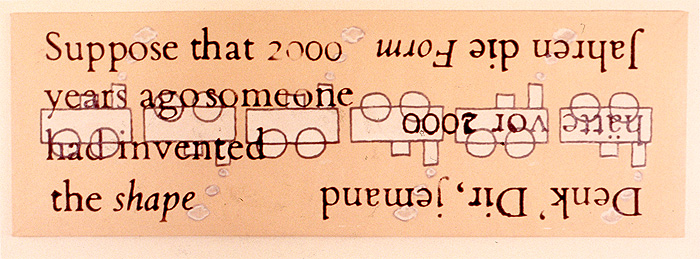 Suppose that 2000
years ago someone
had invented
the shape
Denk' Dir, jemand
hätte vor 2000
Jahren die Form